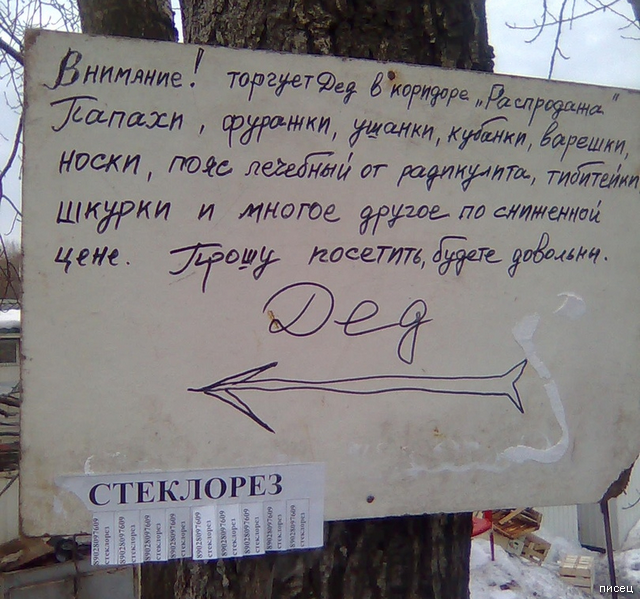 Внимание! торгует Дед в коридоре „Распродажа“
Папахи, фуражки, ушанки, кубанки, варешки,
носки, пояс лечебный от радикулита, тибитейки
шкурки и многое другое по сниженной
цене. Прошу посетить, будете довольны.
Дед
СТЕКЛОРЕЗ
89028097609 стеклорез
89028097609 стеклорез
89028097609 стеклорез
89028097609 стеклорез
89028097609 стеклорез
89028097609 стеклорез
89028097609 стеклорез
89028097609 стеклорез
89028097609 стеклорез
писец